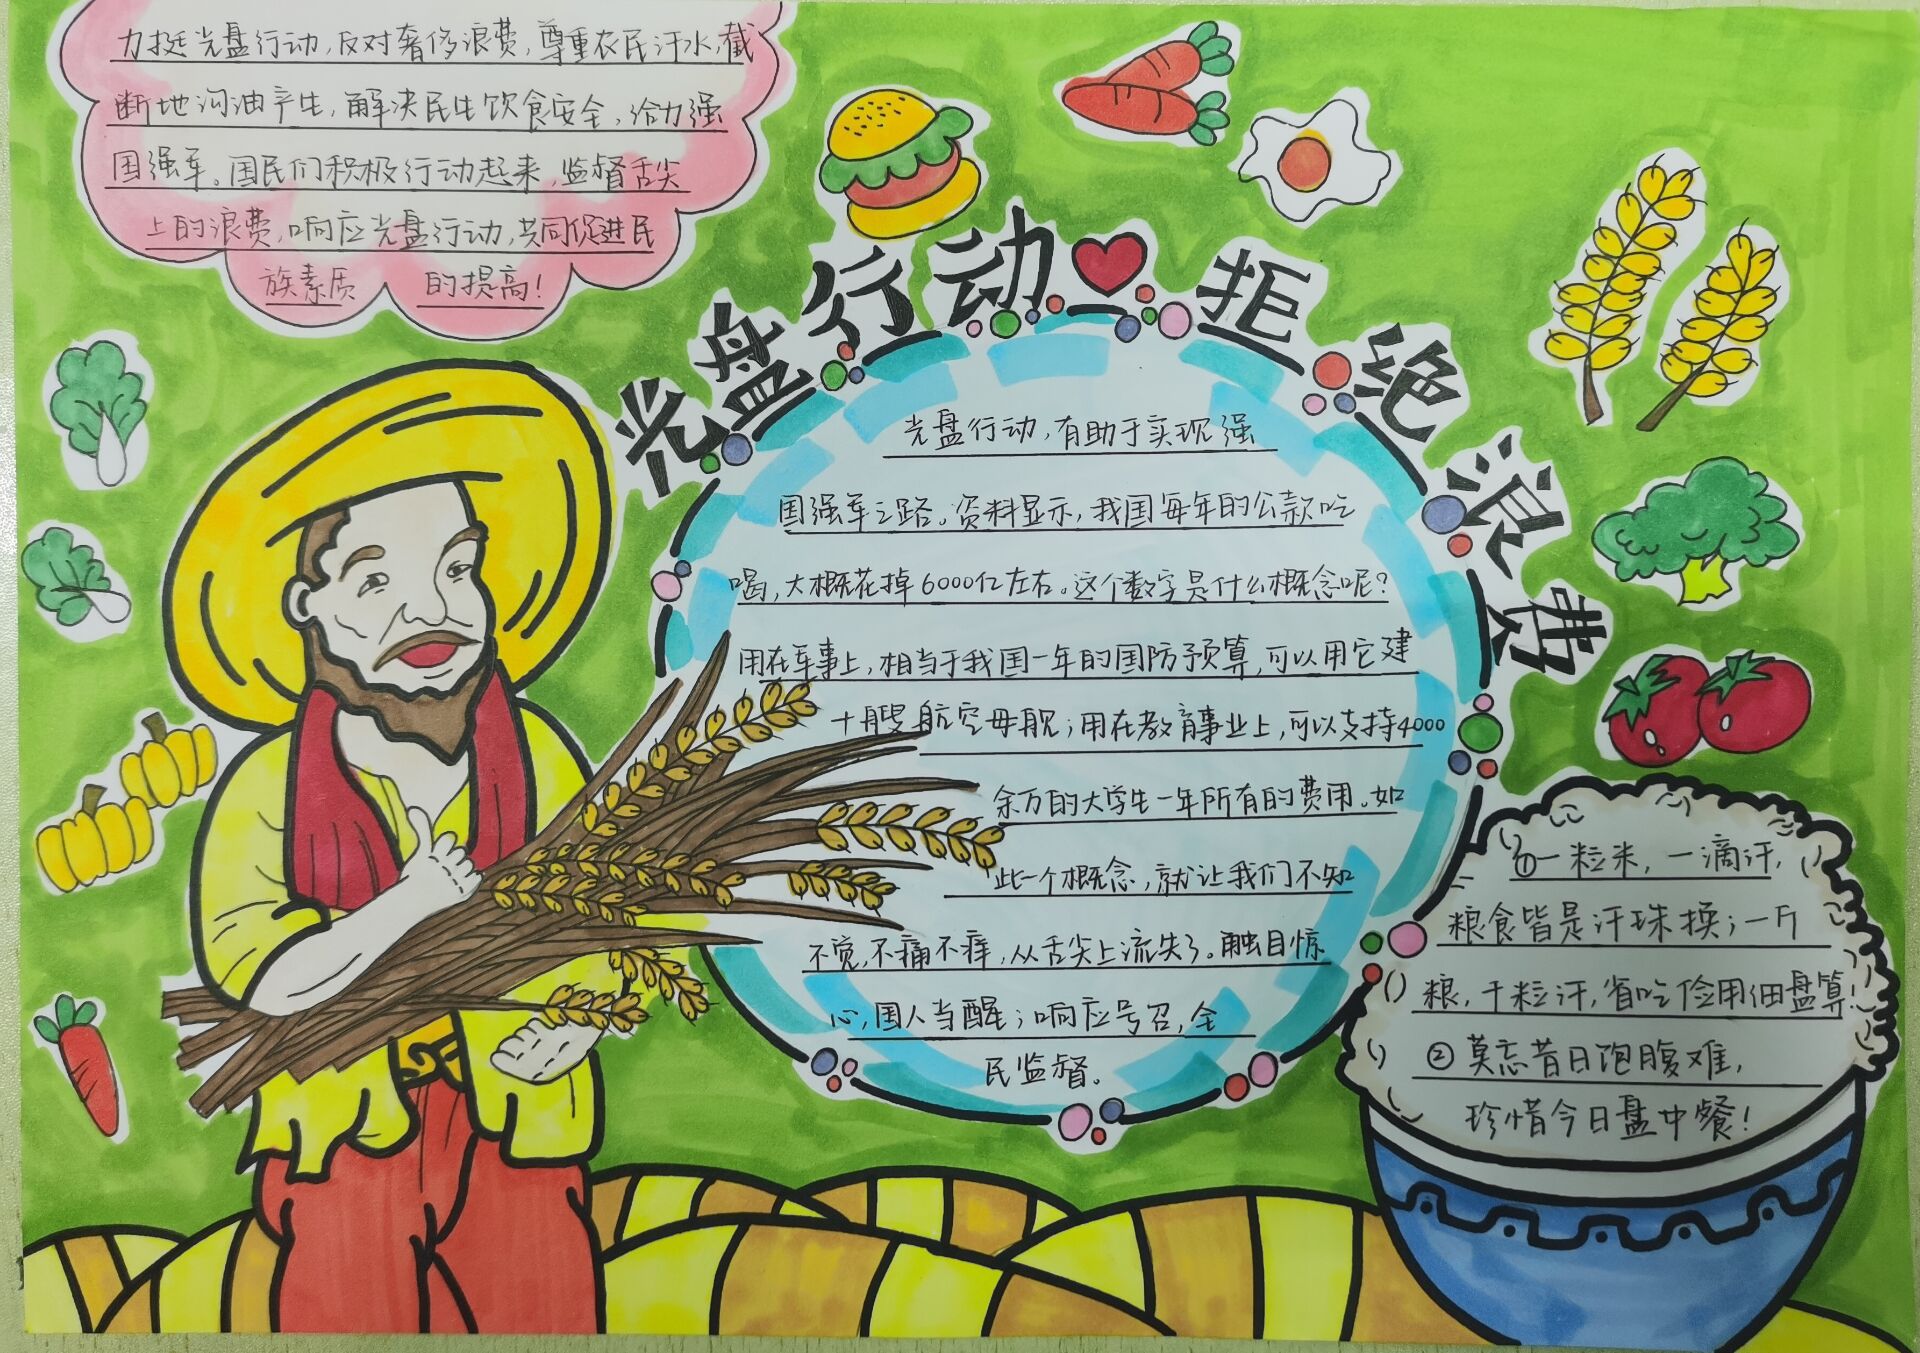 力挺光盘行动,反对奢侈浪费,尊重农民汗水,截
断地沟油产生,解决民生饮食安全,给力强
国强军。国民们积极行动起来,监督舌尖
上的浪费,响应光盘行动,共同促进民
族素质的提高!
光盘行动❤拒绝浪费
光盘行动,有助于实现强
国强军之路。资料显示,我国每年的公款吃
喝,大概花掉6000亿左右。这个数字是什么概念呢?
用在军事上,相当于我国一年的国防预算,可以用它建
十艘航空母舰;用在教育事业上,可以支持4000
余万的大学生一年所有的费用。如
此一个概念,就让我们不知
不觉,不痛不痒,从舌尖上流失了。触目惊
心,国人当醒;响应号召,全
民监督。
①一粒米,一滴汗,
粮食皆是汗珠换;一斤
粮,千粒汗,省吃俭用细盘算!
②莫忘昔日饱腹难,
珍惜今日盘中餐!